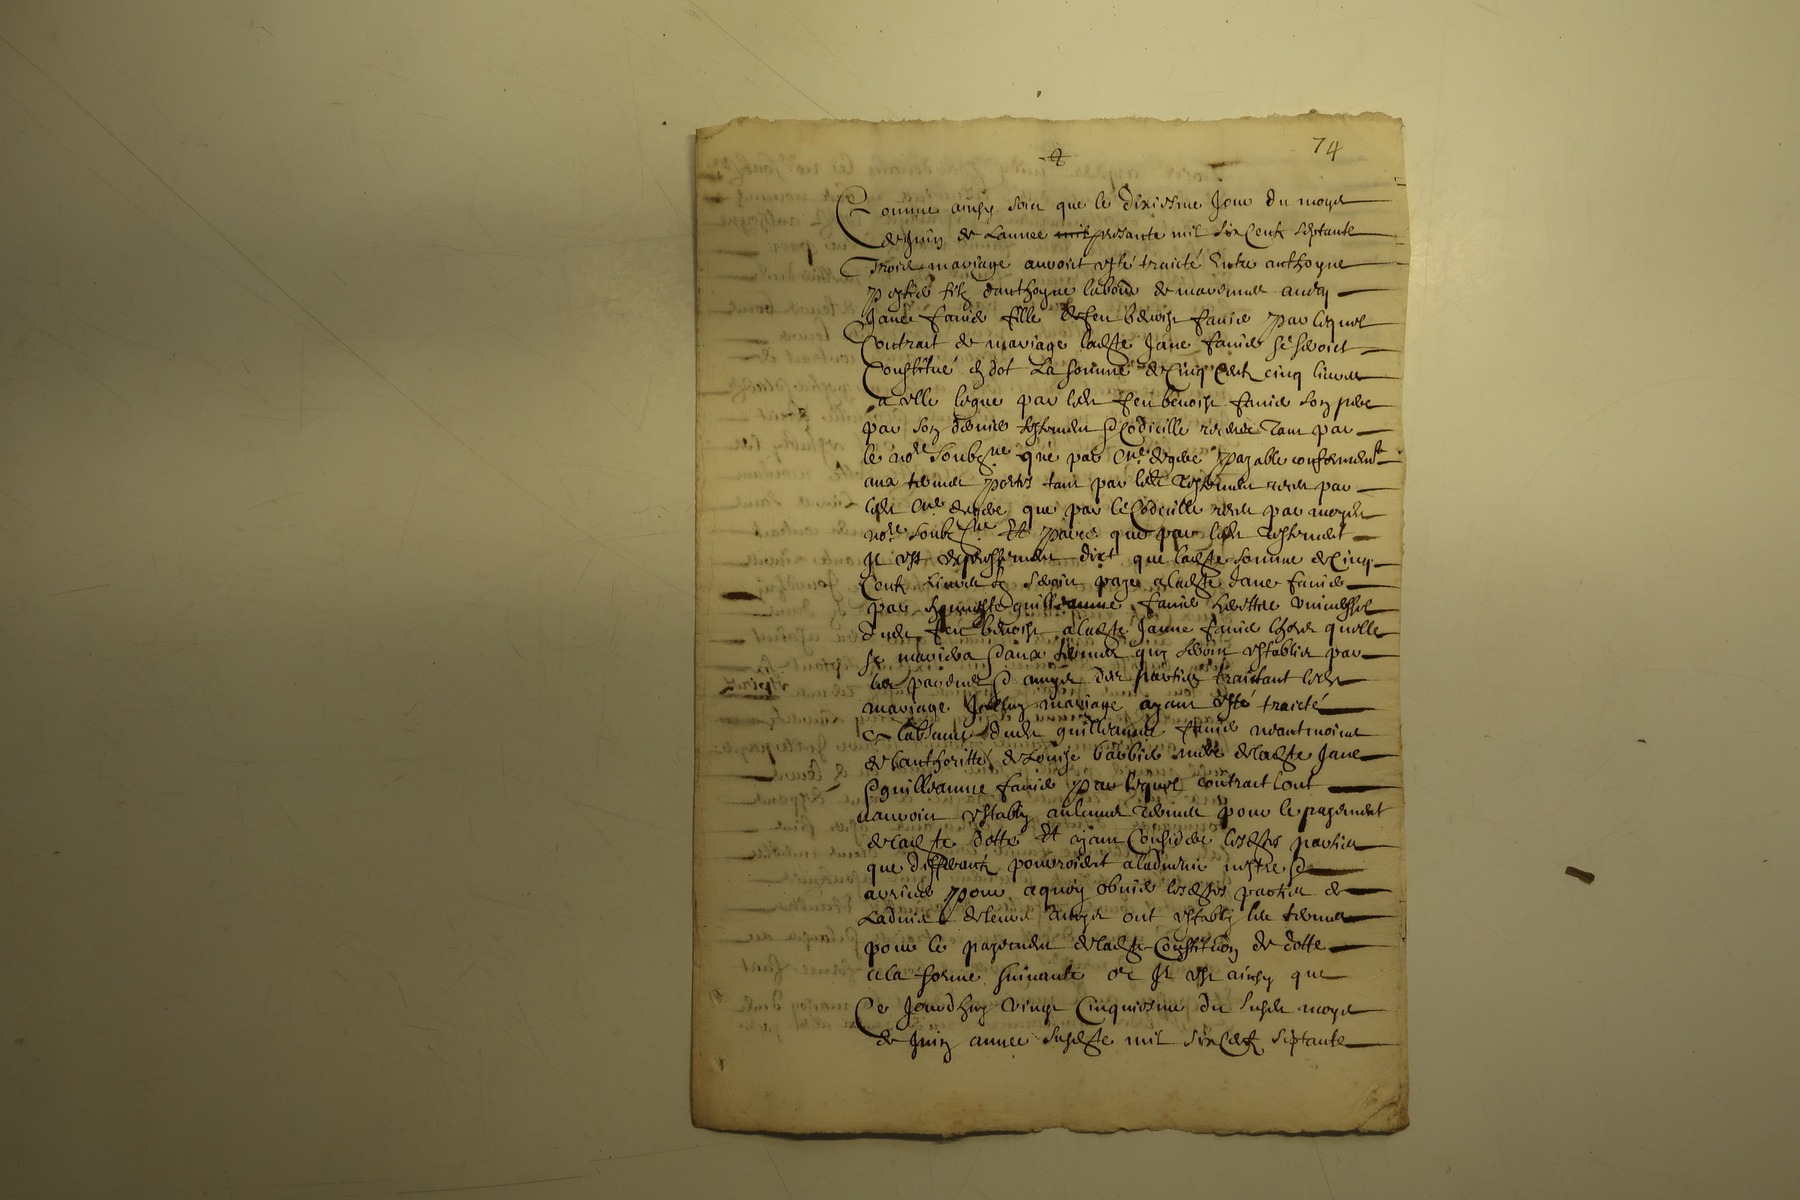 74
Comme ainsy soit que le dixiesme Jour du moys
de Juin de Lannee presante mil six Cent septante
Trois mariage auroict esté traicté Entre anthoyne
filz danthoyne labour de
Jane faure fille de feu benoist faure par lequel
Contrait de mariage ladte Jane faure se seroict
Constitué en dot La somme de Cinq Cent cinq liures
a elle legue par ledt feu benoist faure son pere
par son dernier testement & Codicille receus Tant par
le nore soubzne que par payable conformemt
aux termes portés tant par ledt Testement receu par
ledt que par le Codicille receu par moydt
nore soubzne Et parce que par ledt Testement
Il est expressement dict que ladte somme de Cinq
Cent Liures se seroit paye a ladte Jane faure
par guilleaume faure herettier vniuersel
dudt feu benoist a ladte Janne faure lhors quelle
se mariera & aux termes quy seroint establis par
les parens & amys des parties traictant ledt
mariage Icelluy mariage ayant esté traicté
En labsance dudt guilleaume faure neantmoins
de lauthoritté de Louise barbier mere de ladte Jane
& guilleaume faure par lequel contrait lont
nauroict estably aulcuns Termes pour le payement
de ladte dotte Et ayant Consideré lesdtes parties
que differants pourroient a laduenir nestre &
arriuer pour a quoy obuier lesdtes parties de
Laduis de leurs amys ont estably les termes
pour le payement de ladte Constitution de dotte
a la forme suiuante or Il est ainsy que
Ce Jourdhuy vingt Cinquiesme du susdt moys
de Juin annee susdte mil six Cent septante